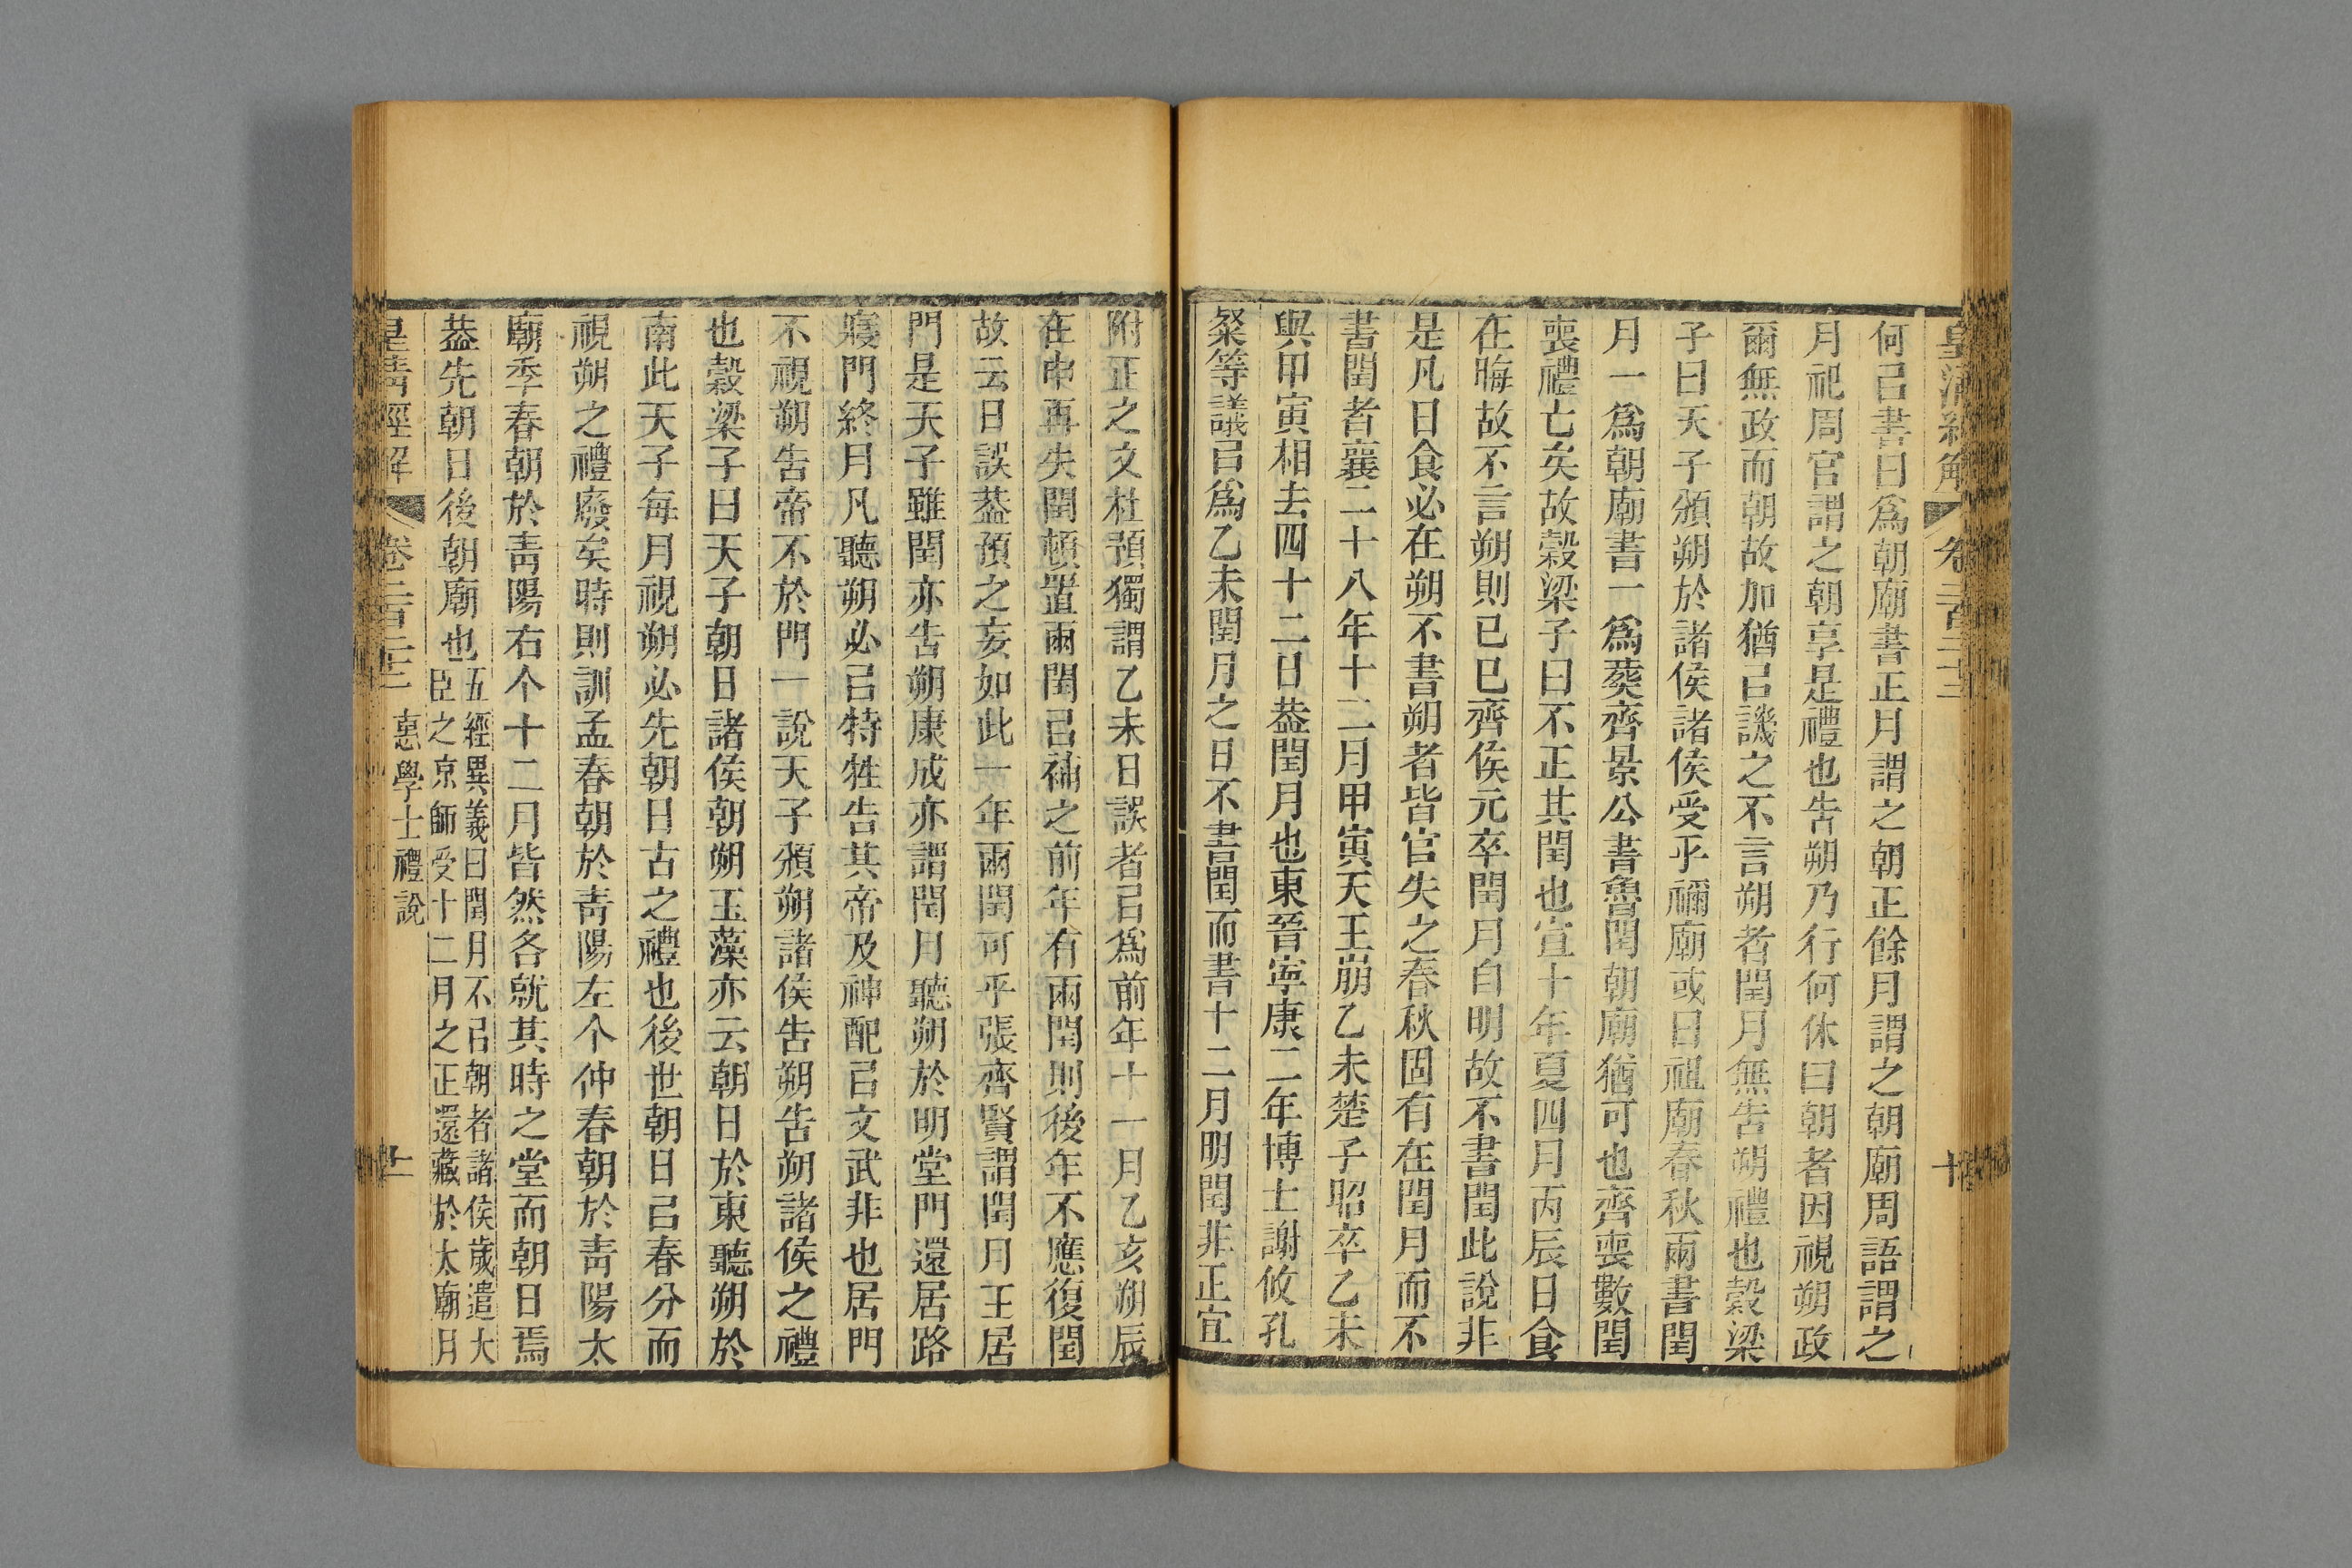 皇清經解 卷二百二十三 十
何㠯書曰爲朝廟書正月謂之朝正餘月謂之朝廟周語謂之
月祀周官謂之朝享是禮也告朔乃行何休曰朝者因視朔政
爾無政而朝故加猶㠯譏之不言朔者閏月無告朔禮也穀梁
子曰天子頒朔於諸侯諸侯受乎禰廟或曰祖廟春秋兩書閏
月一爲朝廟書一爲葬齊景公書魯閏朝廟猶可也齊喪數閏
喪禮亡矣故穀梁子曰不正其閏也宣十年夏四月丙辰日食
在晦故不言朔則已巳齊侯元卒閏月自明故不書閏此說非
是凡日食必在朔不書朔者皆官失之春秋固有在閏月而不
書閏者襄二十八年十二月甲寅天王崩乙未楚子昭卒乙未
與甲寅相去四十二日葢閏月也東晉寧康二年博士謝攸孔
粲等議㠯爲乙未閏月之日不書閏而書十二月明閏非正宜
附正之文杜預獨謂乙未日誤者㠯爲前年十一月乙亥朔辰
在申再失閏頓置兩閏㠯補之前年有兩閏則後年不應復閏
故云日誤葢預之妄如此一年兩閏可乎張齊賢謂閏月王居
門是天子雖閏亦告朔康成亦謂閏月聽朔於明堂門還居路
寢門終月凡聽朔必㠯特牲告其帝及神配㠯文武非也居門
不視朔告帝不於門一說天子頒朔諸侯告朔告朔諸侯之禮
也穀梁子曰天子朝日諸侯朝朔玉藻亦云朝日於東聽朔於
南此天子每月視朔必先朝日古之禮也後世朝日㠯春分而
視朔之禮廢矣時則訓孟春朝於靑陽左个仲春朝於靑陽太
廟季春朝於靑陽右个十二月皆然各就其時之堂而朝日焉
葢先朝日後朝廟也五經異義曰閏月不㠯朝者諸侯歲遣大
臣之京師受十二月之正還藏於太廟月
皇清經解 卷二百二十三 惠學士禮說 十一